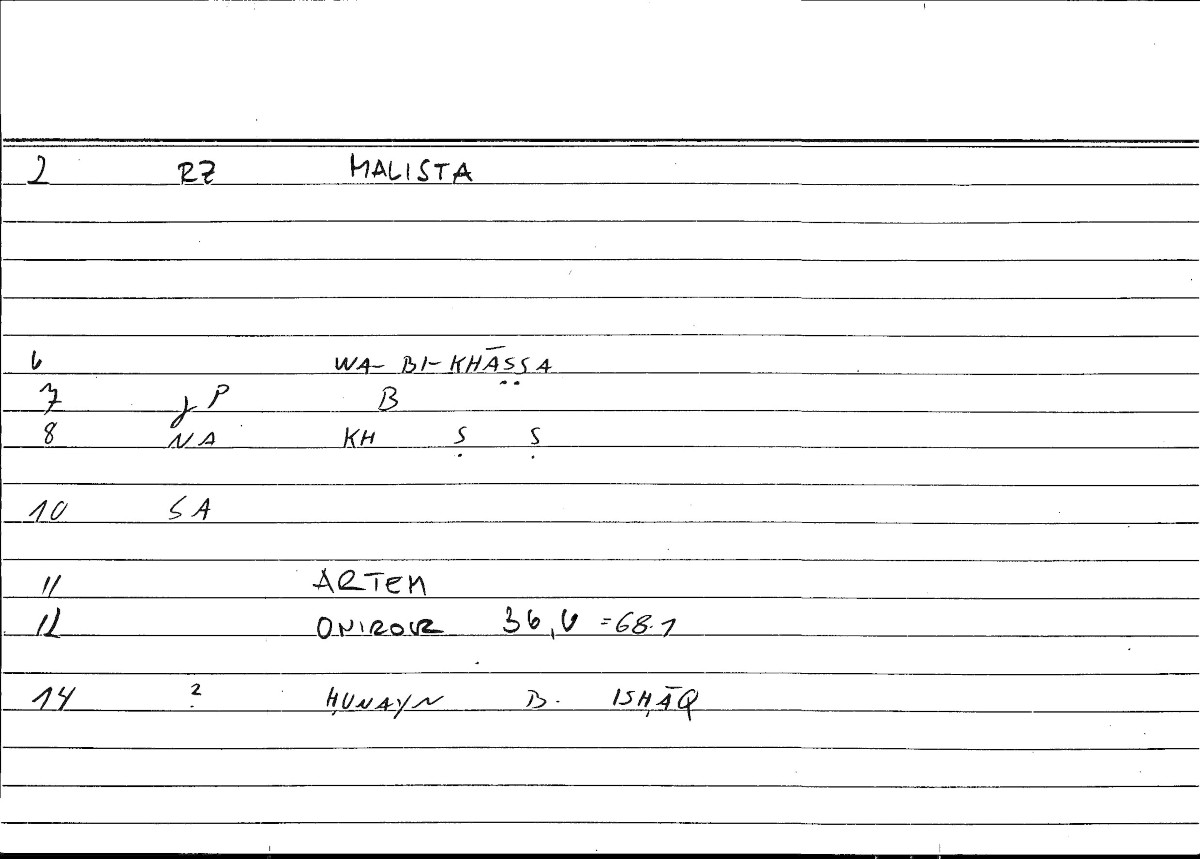 2 RZ MALISTA
6 WA-BI-KHĀṢṢA
7 P B
8 NA KH Ṣ Ṣ
10 SA
11 ARTEM
12 ONIROCR 36,6 =68.1
14 ? ḤUNAYN B. ISḤĀQ